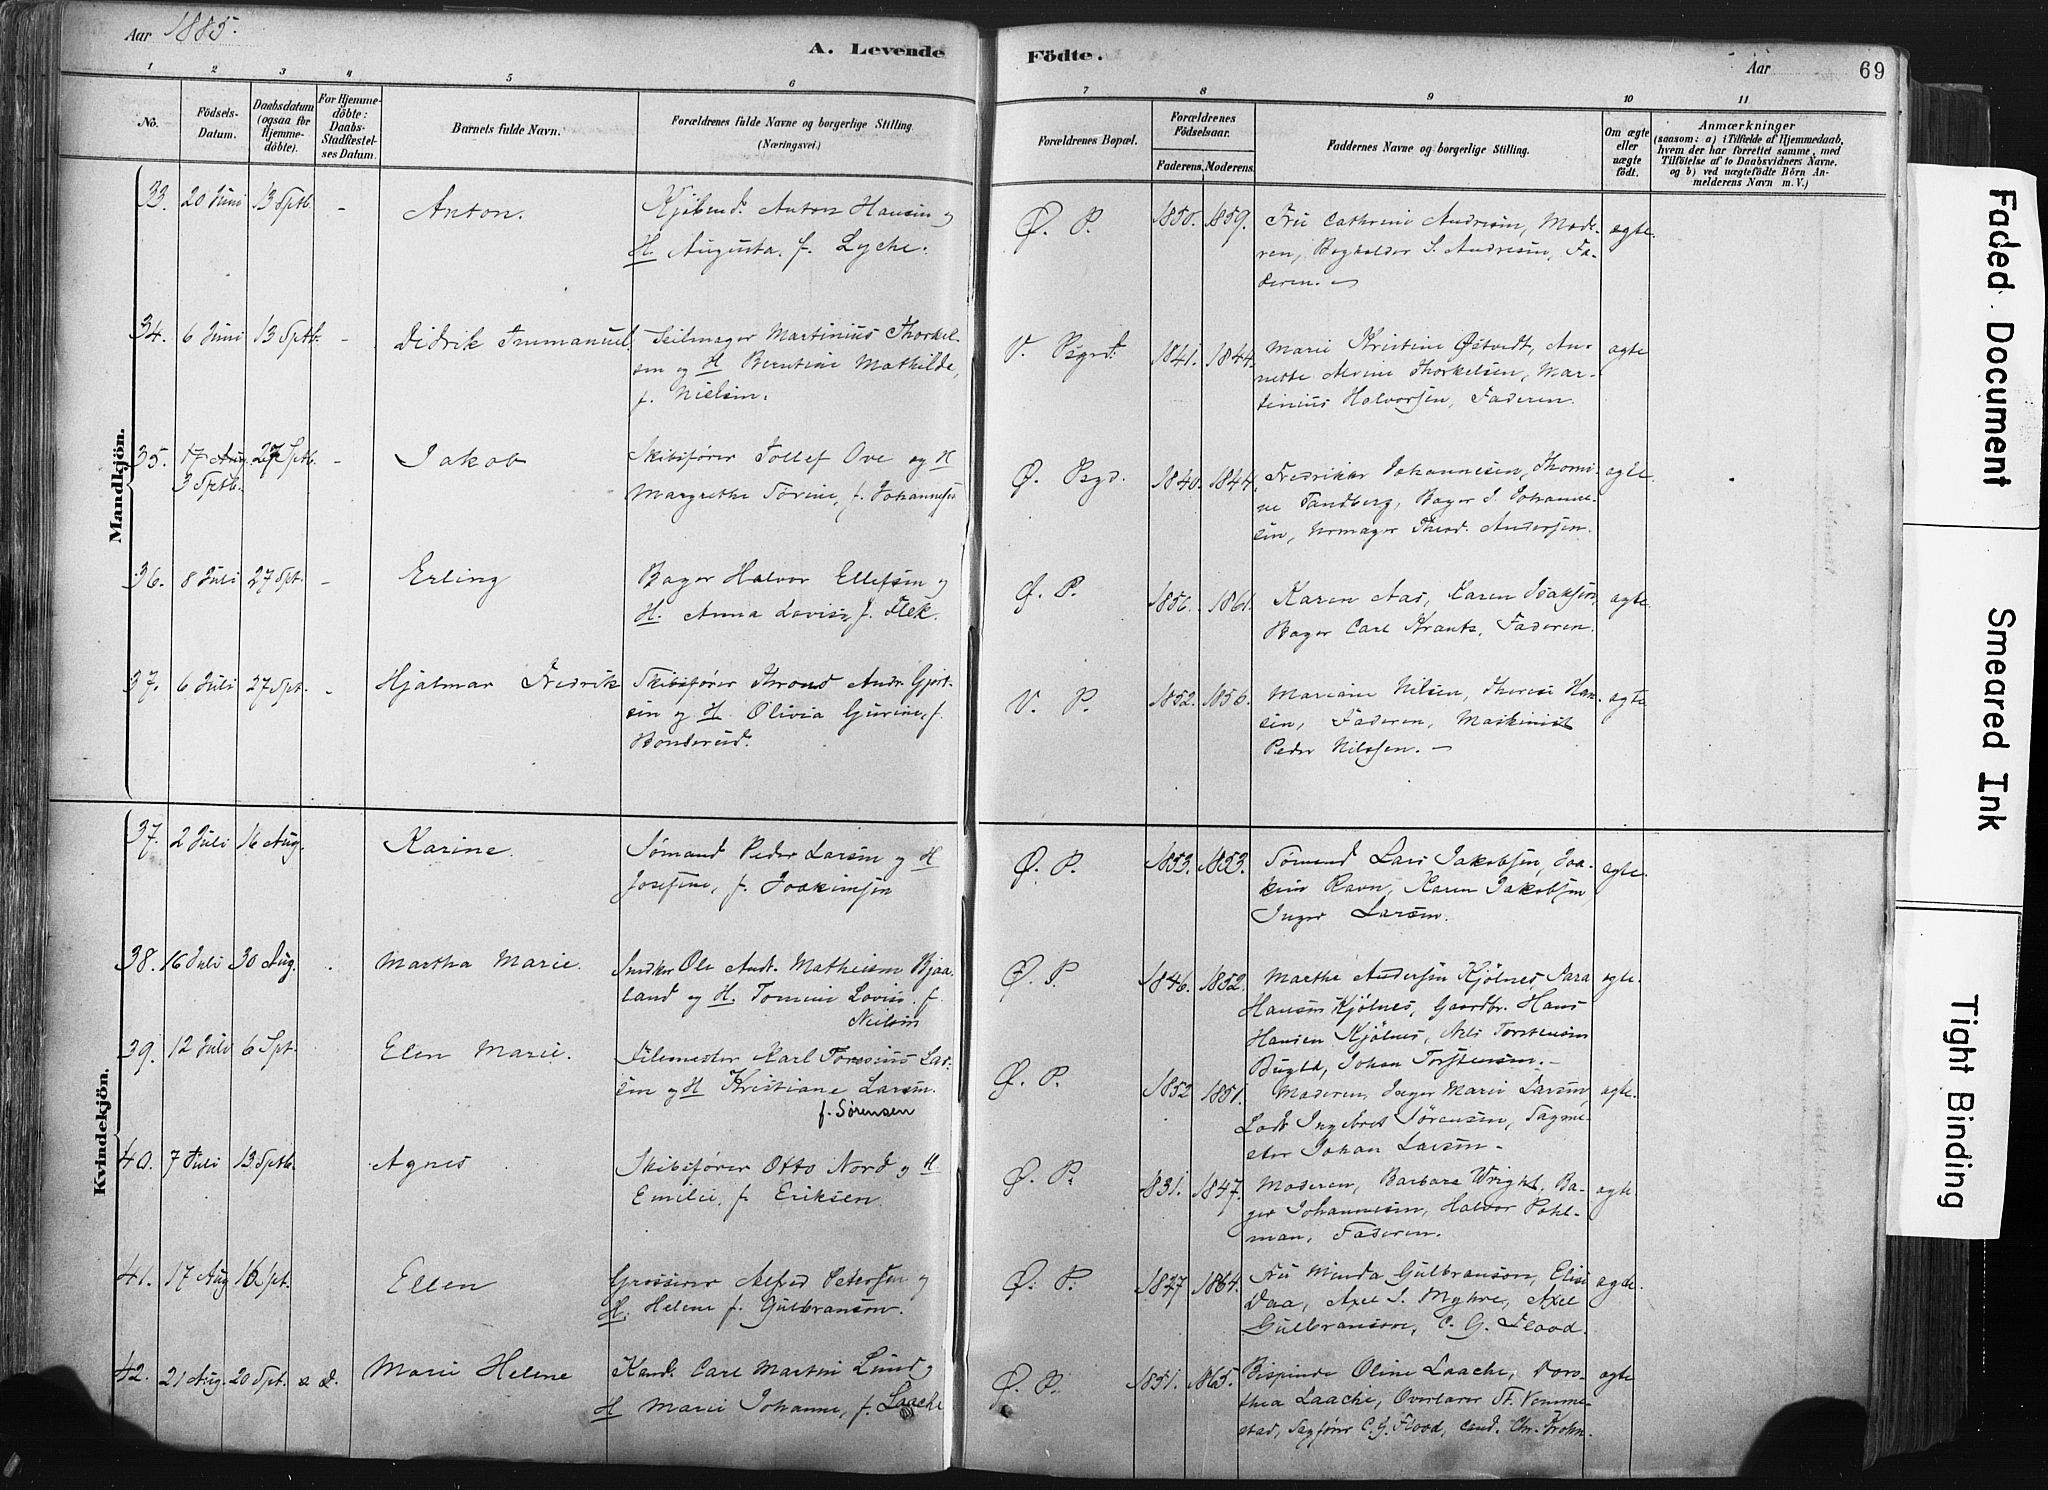 Aar 1885.
A. Levende Födte.
Aar
69
1 2 3 4 5 6 7 8 9 10 11
No.
Födsels-
Datum.
Daabsdatum
(ogsaa for
Hjemme-
döbte).
For Hjemme-
döbte:
Daabs-
Stadfæstel-
ses Datum.
Barnets fulde Navn.
Forældrenes fulde Navne og borgerlige Stilling.
(Næringsvei.)
Forældrenes Bopæl.
Forældrenes
Födselsaar.
Faderens. Moderens.
Faddernes Navne og borgerlige Stilling.
Om ægte
eller
uægte
født.
Anmærkninger
(saasom: a) i Tilfælde af Hjemmedaab,
hvem der har forrettet samme, med
Tilföielse af to Daabsvidners Navne,
og b) ved uægtefödte Börn An-
melderens Navn m. V.)
Mandkjön.
33. 20 Juni 13 Sptb. - Anton. Kjöbmd. Anton Hansen og
H. Augusta, f. Lyche.
Ø. P. 1850. 1859. Fru Cathrine Andresen, Mode- ægte.
ren, Bogholder S. Andresen, Fa-
deren.
34. 6 Juni 13 Sptb. - Didrik Immanuel. Seilmager Martinius Thorkel-
sen og H Berntine Mathilde,
f. Nielsen.
V. Psgrd. 1841. 1844. Marie Kristine Østvedt, An- ægte
nette Alvine Thorkelsen, Mar-
tinius Halvorsen, Faderen.
35. 17 Aug. 27 Sptb. - Jakob Skibsfører Tollef Ove og H
3 Sptb. Margrethe Sørine, f. Johannesen
Ø. Psgd. 1840. 1844. Fredrikke Johannesen, Thomi- ægte.
ne Tandberg, Bager J. Johanne-
sen, Urmager Theod. Andersen.
36. 8 Juli 27 Spt. - Erling Bager Halvor Ellefsen og
H. Anna Lovise, f. Flek.
Ø. P. 1856. 1861. Karen Aas, Karen Isaksen, ægte.
Bager Carl Krantz, Faderen.
37. 6 Juli 27 Spt. - Hjalmar Fredrik Skibsfører Thrond Andr. Gjert-
sen og H. Olivia Gurine, f.
Bonderud.
V. P. 1852. 1856. Mariane Nilsen, Therese Han- ægte
sen, Faderen, Maskinist
Peder Nilssen. -
Kvindekjön.
37. 2 Juli 16 Aug. Karine. Sømand Peder Larsen og H
Josefine, f. Joakimsen
Ø. P. 1853. 1853. Sømand Lars Jakobsen, Joa- ægte.
kim Ravn, Karen Jakobsen
Inger Larsen.
38. 16 Juli 30 Aug. Martha Marie. Snedker Ole Andr. Mathisen Bjaa-
land og H. Tomine Lovise f.
Nielsen
Ø. P. 1846. 1852. Marthe Andersen Kjölnes, Sara ægte.
Hansen Kjölnes, Gaardbr. Hans
Hansen Kjölnes, Nels Torstensen
Bugta, Johan Torstensen. -
39. 12 Juli 6 Spt. Elen Marie. Filemester Karl Toresius Lar-
sen og H Kristiane Larsen.
f. Sørensen
Ø. P. 1852 1851. Moderen, Inger Marie Larsen, ægte.
Lods Ingebret Sørensen, Sagme-
ster Johan Larsen -
40. 7 Juli 13 Sptb. Agnes Skibsfører Otto Nord og H
Emilie, f. Eriksen
Ø. P. 1831. 1847. Moderen, Barbara Wright, Ba- ægte
ger Johannesen, Halvor Pohl-
man, Faderen.
41. 17 Aug 16 Spt. Ellen Grosserer Alfred Petersen og
H. Helene f. Gulbranson.
Ø. P. 1847 1864. Fru Minda Gulbranson, Elise ægte.
Daa, Axel S. Myhre, Axel
Gulbranson, C. G. Flood.
42. 21 Aug. 20 Spt. Marie Helene Kand. Carl Martin Lund og
H Marie Johanne, f. Laache
Ø. P. 1851. 1865. Bispinde Oline Laache, Doro- ægte
thea Laache, Overlærer St. Vemme-
stad, Sagfører C. G. Flood, cand. Chr. Krohn.
Faded Document
Smeared Ink
Tight Binding